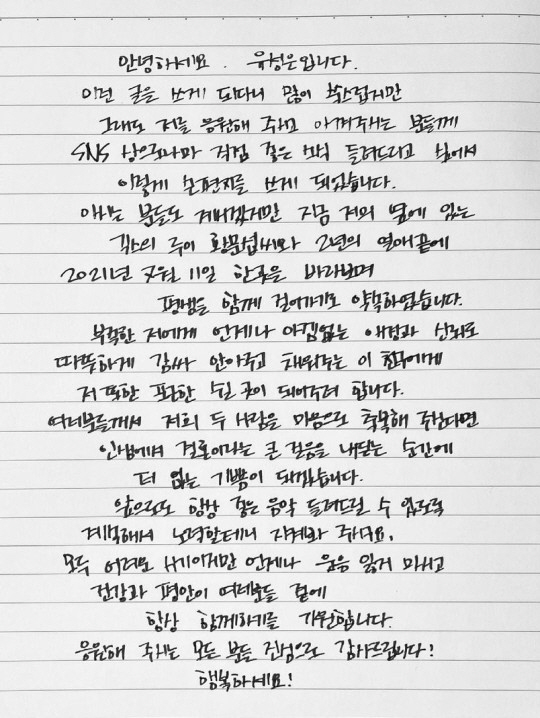 안녕하세요. 유성은입니다.
이런 글을 쓰게 되다니 많이 쑥스럽지만
그래도 저를 응원해 주시고 아껴주시는 분들께
SNS 상으로나마 직접 좋은 소식 들려드리고 싶어서
이렇게 손편지를 쓰게 되었습니다.
아시는 분들도 계시겠지만 지금 저의 옆에 있는
긱스의 루이 황문섭씨와 2년의 열애끝에
2021년 7월 11일 한곳을 바라보며
평생을 함께 걸어가기로 약속하였습니다.
부족한 저에게 언제나 아낌없는 애정과 신뢰로
따뜻하게 감싸 안아주고 채워주는 이 친구에게
저 또한 편한 쉴 곳이 되어주려 합니다.
여러분들께서 저희 두 사람을 마음으로 축복해 주신다면
인생에서 결혼이라는 큰 걸음을 내딛는 순간에
더 없는 기쁨이 되겠습니다.
앞으로도 항상 좋은 음악 들려드릴 수 있도록
계속해서 노력할테니 지켜봐 주세요.
모두 어려운 시기이지만 언제나 웃음 잃지 마시고
건강과 평안이 여러분들 곁에
항상 함께하기를 기원합니다.
응원해 주시는 모든 분들 진심으로 감사드립니다!
행복하세요!